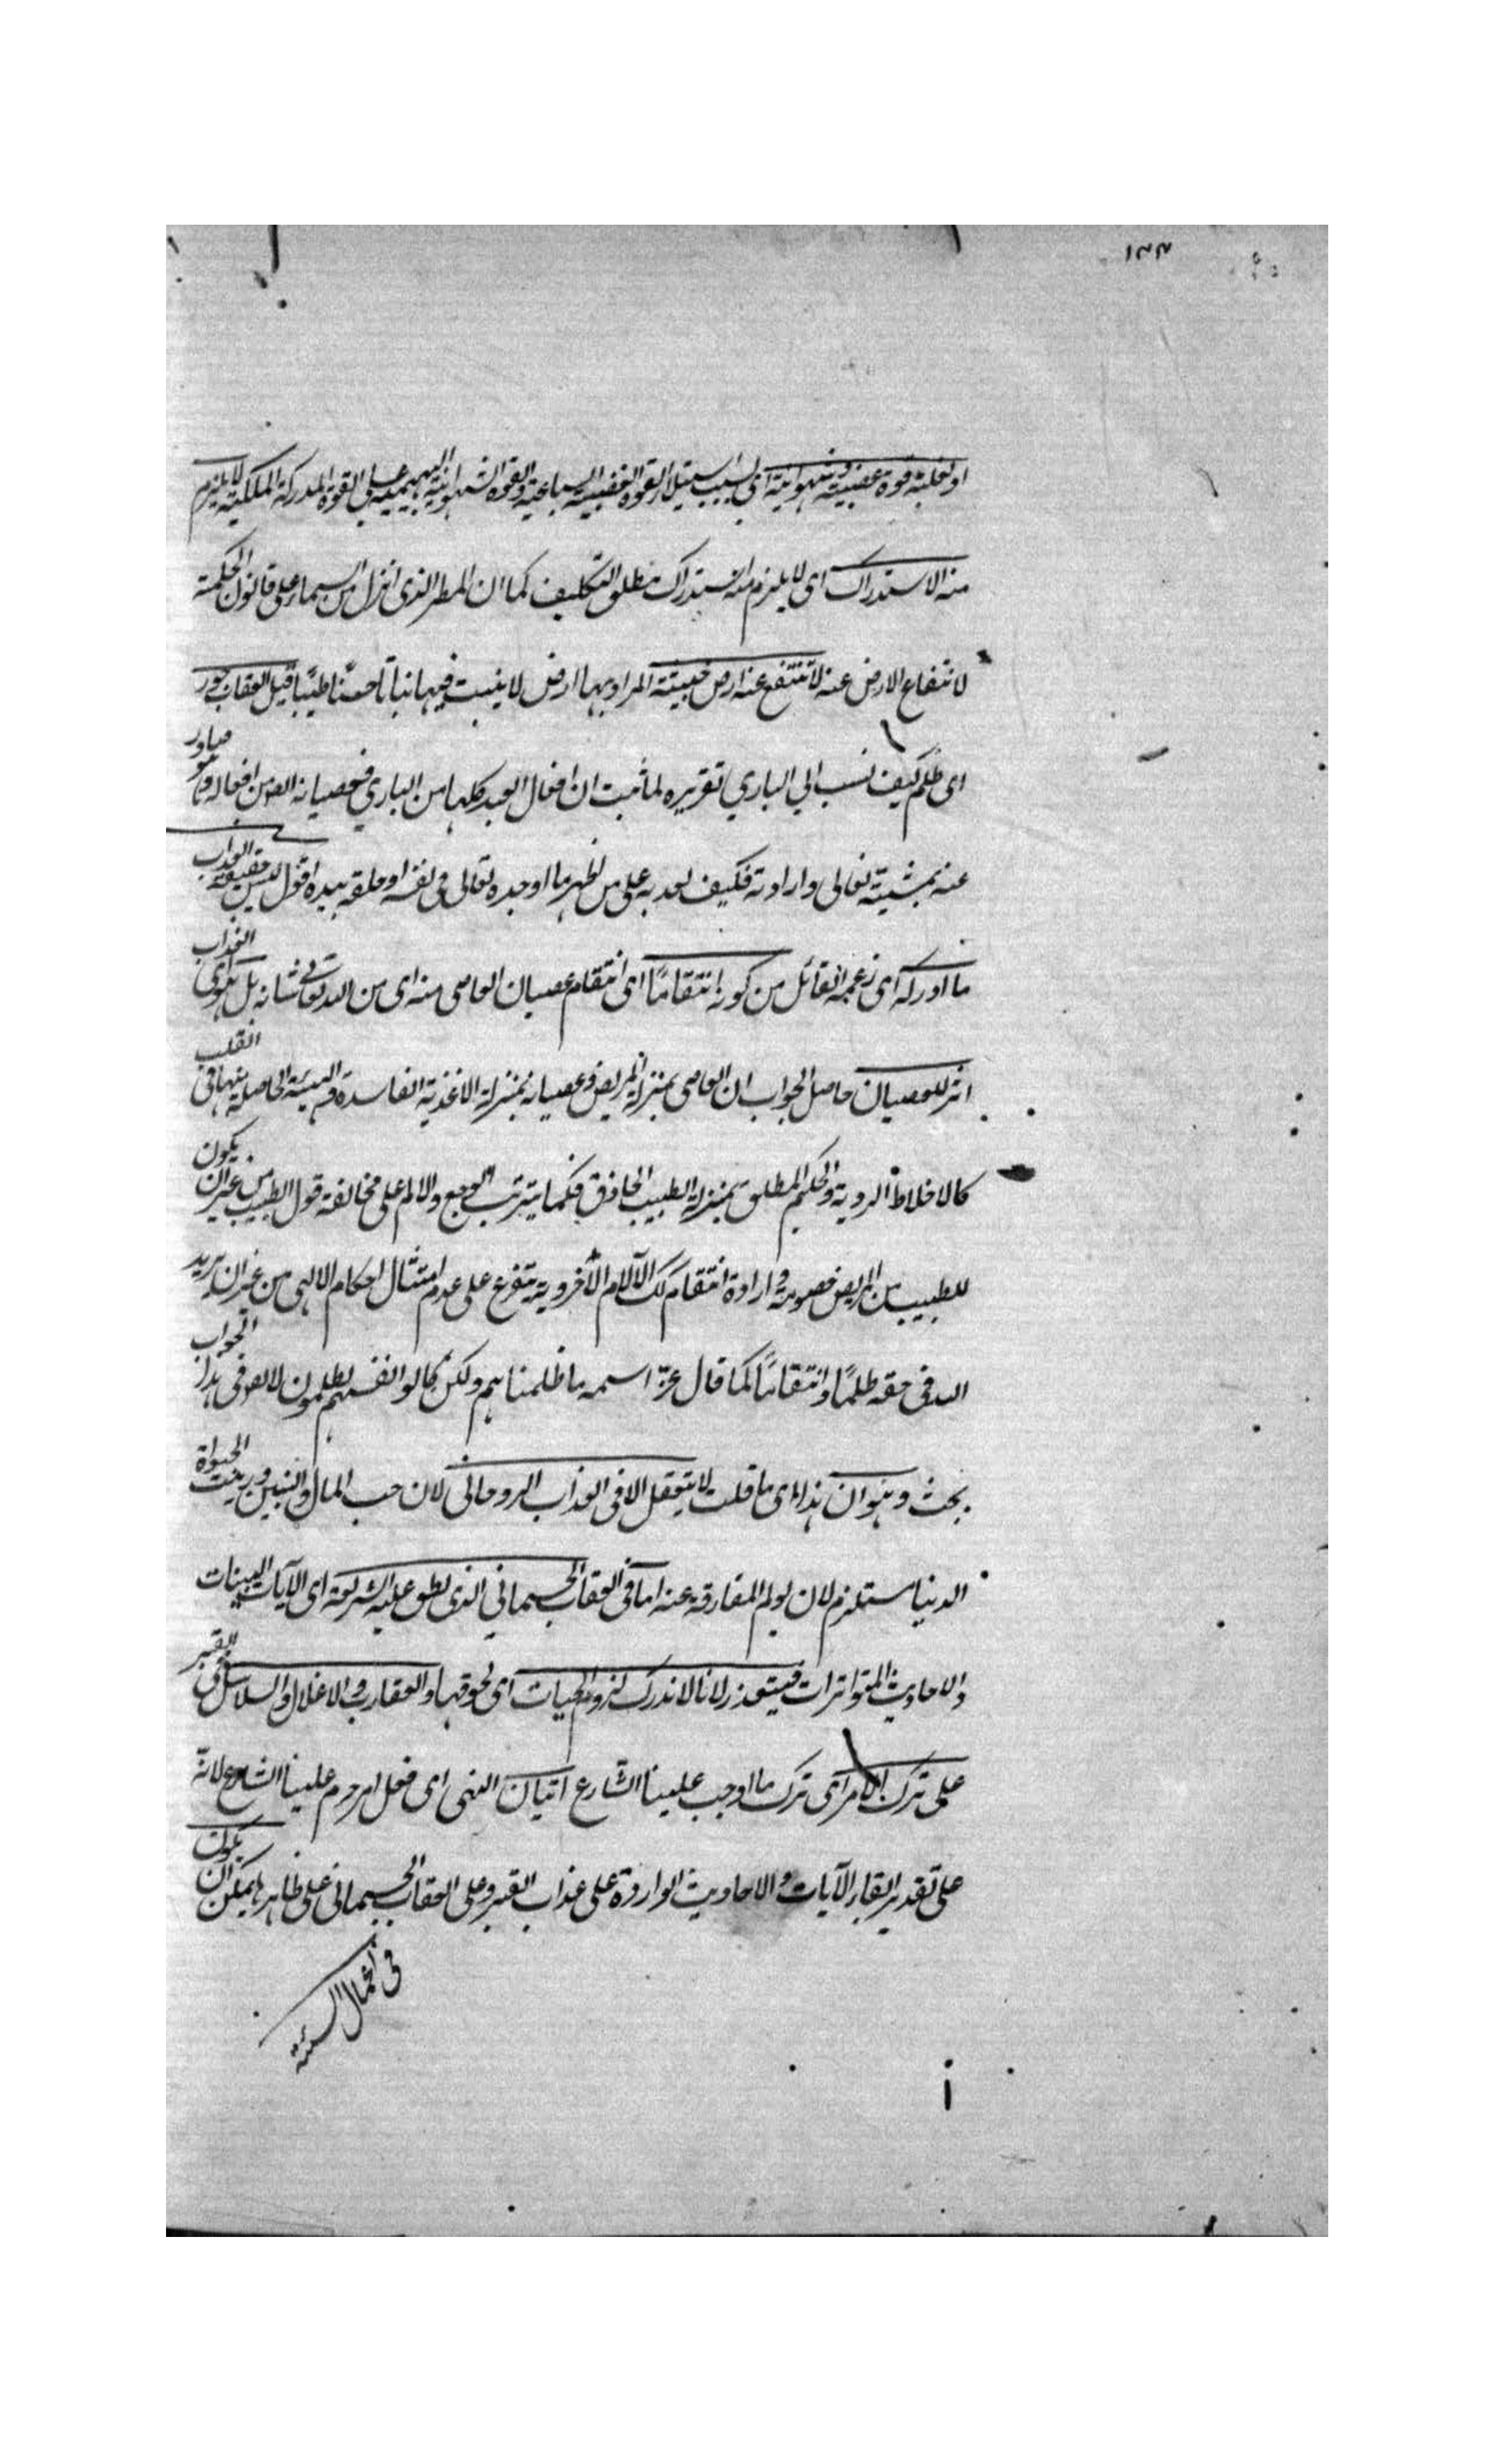 ١٣٣
او لغلبة قوة غضبية وشهوانية اى بسبب استيلاء القوة الغضبية السباعية والقوة الشهوانية البهيمية على القوة المدركة الملكية لا يلزم
منه الاستدراك اى لا يلزم منه استدراك مطلق التكليف كما ان المطر الذى انزل من السماء على قانون الحكمة
لانتفاع الارض عنه لا تنتفع عنه ارض خبيثة المراد بها ارض لا ينبت فيها نباتا حسنا طيبا قيل العقاب جور
اى ظلم كيف نسب الى البارى تقريره لما ثبت ان افعال العبد كلها من البارى فعصيانه ايضا من افعاله وهو صادر
عنه بمشيته تعالى وارادته فكيف يعذبه على من اظهر ما اوجده تعالى فى نفسه او خلقه بيده اقول ليس حقيقة العذاب
ما ادركه اى زعمه القائل من كونه انتقاما اى انتقام عصيان العاصى منه اى من الله تعالى شانه بل هو اى العذاب
اثر للعصيان حاصل الجواب ان العاصى بمنزلة المريض وعصيانه بمنزلة الاغذية الفاسدة والهيئة الحاصلة منها فى القلب
كالاخلاط الردية والحكيم المطلق بمنزلة الطبيب الحاذق فكما يترتب الوجع والالم على مخالفة قول الطبيب من غير ان يكون
للطبيب من المريض خصومة وارادة انتقام كك الآلام الاخروية متفرع على عدم امتثال احكام الالهى من غير ان يريد
الله فى حقه ظلما وانتقاما كما قال عز اسمه ما ظلمناهم ولكن كانوا انفسهم يظلمون لا يقال فى هذا الجواب
بحث وهو ان هذا اى ما قلت لا يتعقل الا فى العذاب الروحانى لان حب المال والبنين وزينت الحيواة
الدنيا مستلزم لان يولم المفارقة عنه اما فى العقاب الجسمانى الذى نطق عليه الشريعة اى الآيات البينات
والاحاديث المتواترات فيتعذر لانا لا ندرك لزوم الحيات اى لحوقها والعقارب والاغلال والسلاسل فى القبر
على ترك الامر اى ترك ما اوجب علينا الشارع اتيان النهى اى فعل امر حرم علينا الشارع لانه
على تقدير ابقاء الآيات والاحاديث الواردة على عذاب القبر وعلى العقاب الجسمانى على ظاهرها يمكن ان يكون
فى اعمال السيئة